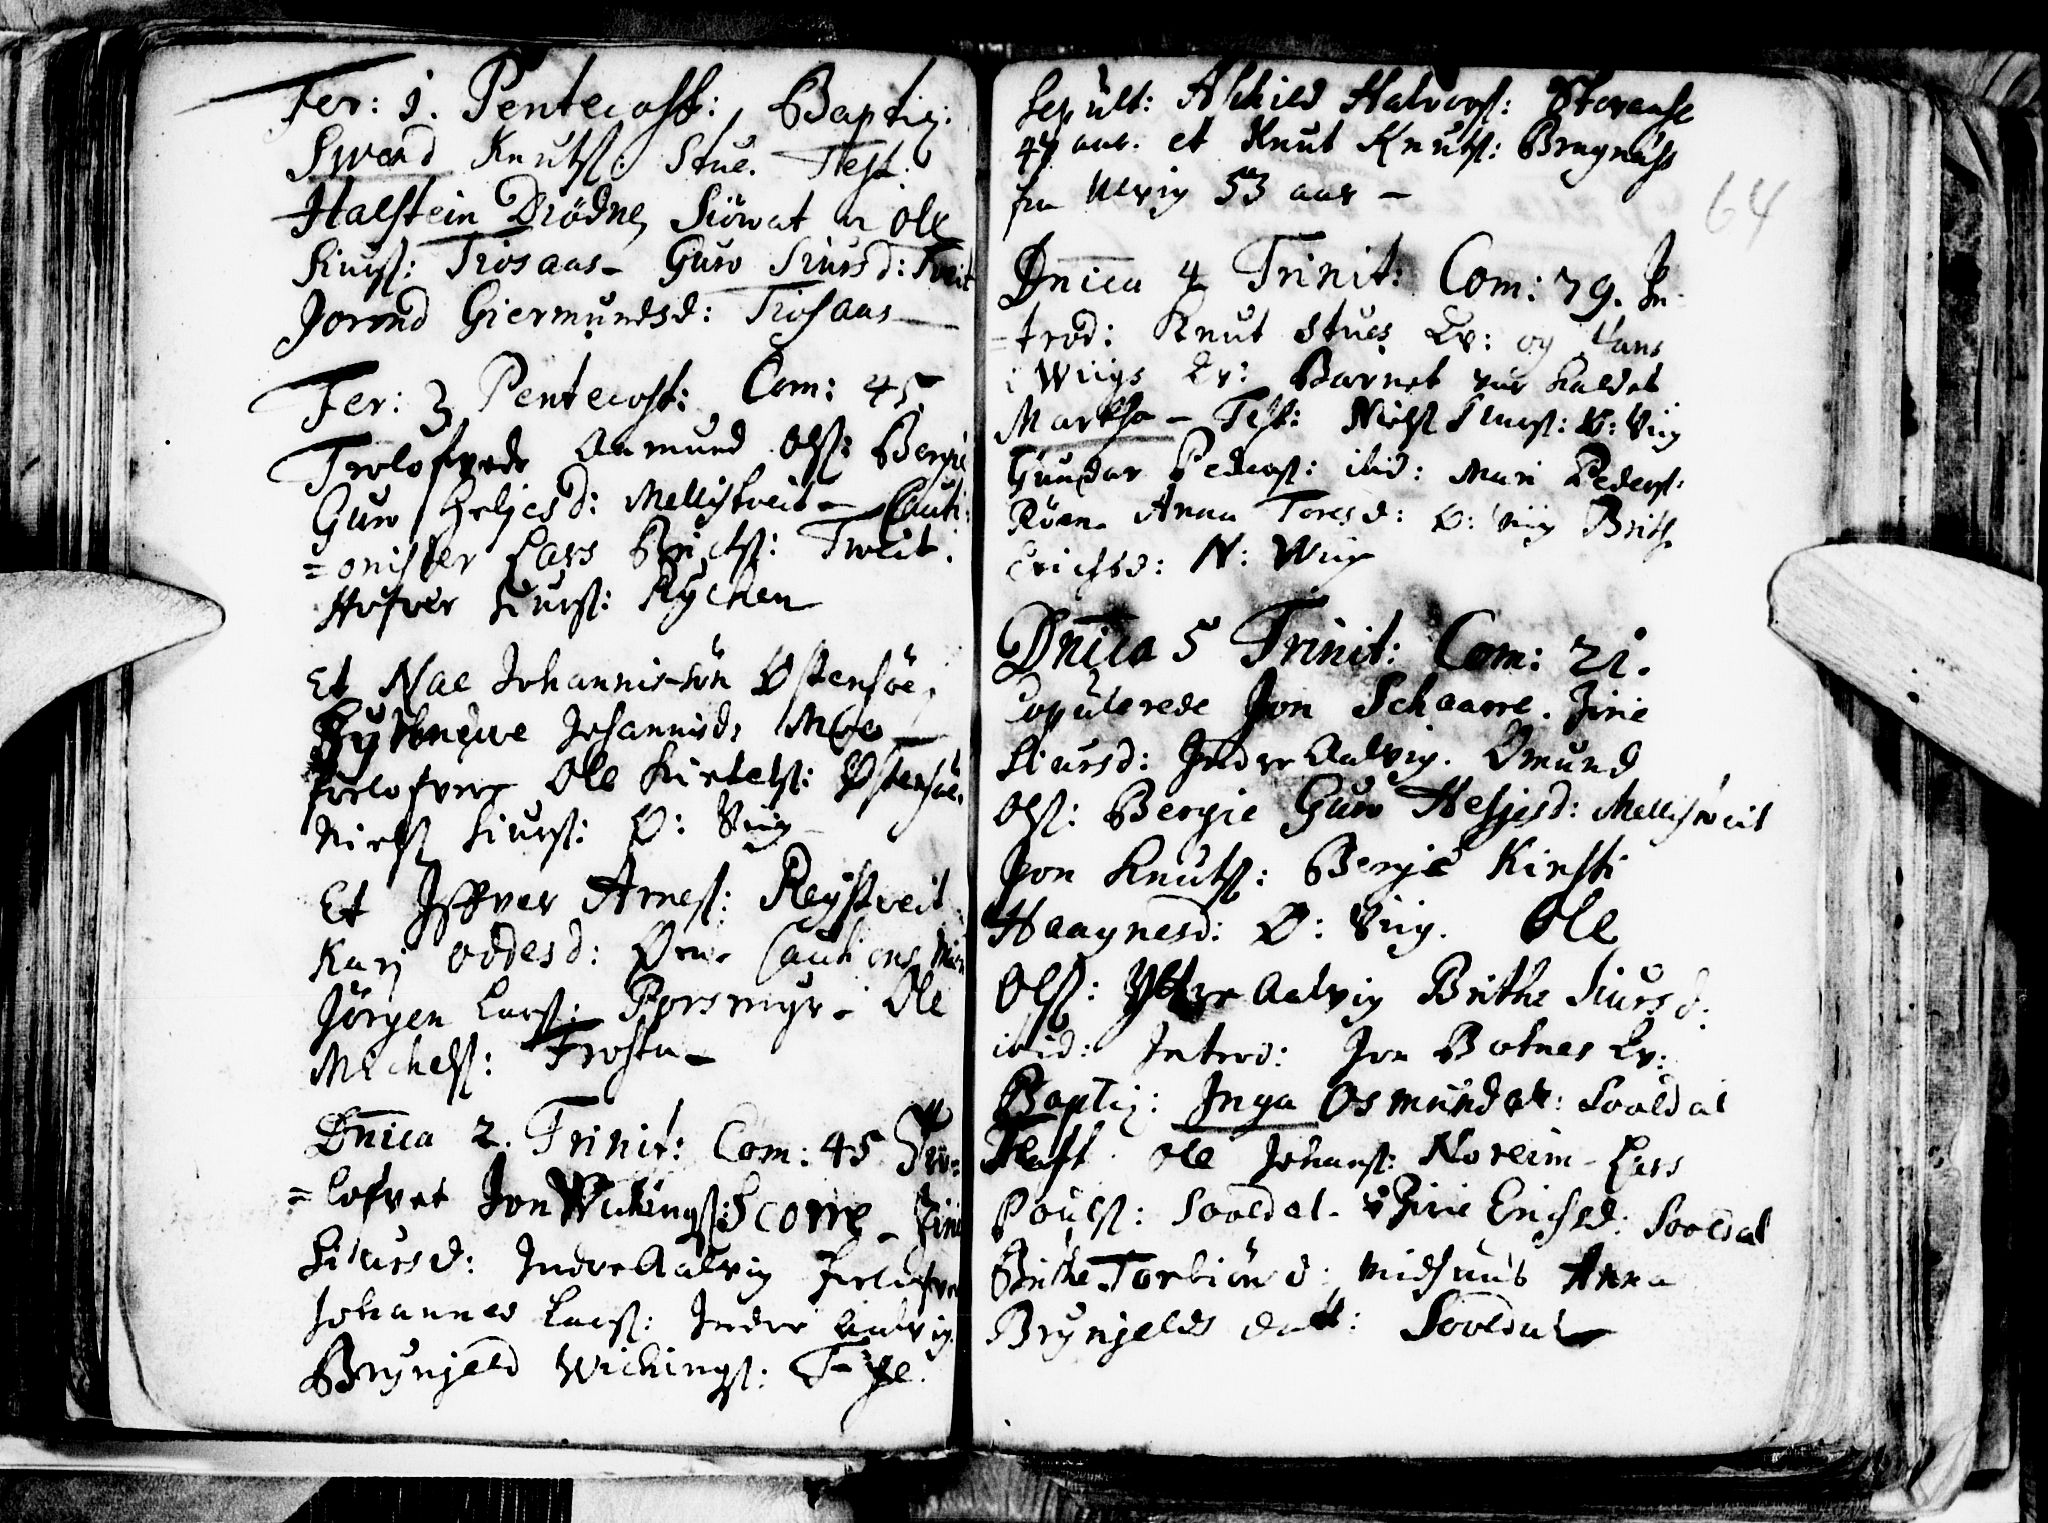 Fer: 1. Pentecost: Baptiz:
Swend Knuts: Stue. Test:
Halstein Drödne, Siöwat Ole
Siurs: Tiosaas – Guro Siursd: Tveit
Jorond Giermundsd: Tiosaas –
Fer: 3 Pentecost: Com: 45.
Trolofvede Aamund Ols: Bergie
Guro Heljesd: Mellistveit – Cauti:
=onister Lars Tveit.
Siurs: Rychen
Et Nae Johannis-sön Ostensöe,
Johannisd: Moe –
forlofvere Ole Kirtels: Ostensöe.
Niels Siurs: O: Viig –
Et Iffver Arnes: Reystveit.
Kari Oddesd: Cautions
Jörgen Lars: Porsmyr – Ole
Michels: Frosta –
Dnica 2. Trinit: Com: 45 Tro=
=lofvet Jon Wichings: Scorre – Zirie
Siursd: Indre Aalvig
Johannes Lars: Indre Aalvig.
Brynjeld Wichings:
Sepult: Aschild Halvors:
47 aar. et Knut Knuts:
fra Ulvig 53 aar –
64
Dnica 4 Trinit: Com: 79. In
=trod: Knut Stues Kv: og Hans
i Wiigs Kv: Barnet var kaldet
Martha – Test: Niels Siurs: O: Viig
Gundar Peders: ibid: Mari Peders:
Röen. Anna Toresd: O: Viig Brith.
Erichsd: N: Wiig
Dnica 5 Trinit: Com: 21.
Copulerede Jon Schaarre. Zirie
Siursd: Indre Aalvig. Omund
Ols: Bergie Guro Heljesd: Mellistveit
Jon Knuts: Berje Kirsti
Haagnesd: O: Viig. Ole
Ols: Yttre Aalvig Brithe Siursd:
ibid: Introd: Jon Botnes Kv:
Baptiz: Inga Osmundat: Sooldal
Test Ole Johans: Noreim – Lars
Pouls: Sooldal – Zirie Erichsd: Sooldal
Brithe Torbiönd: Midsund Anna
Brynjelds datt: Sooldal